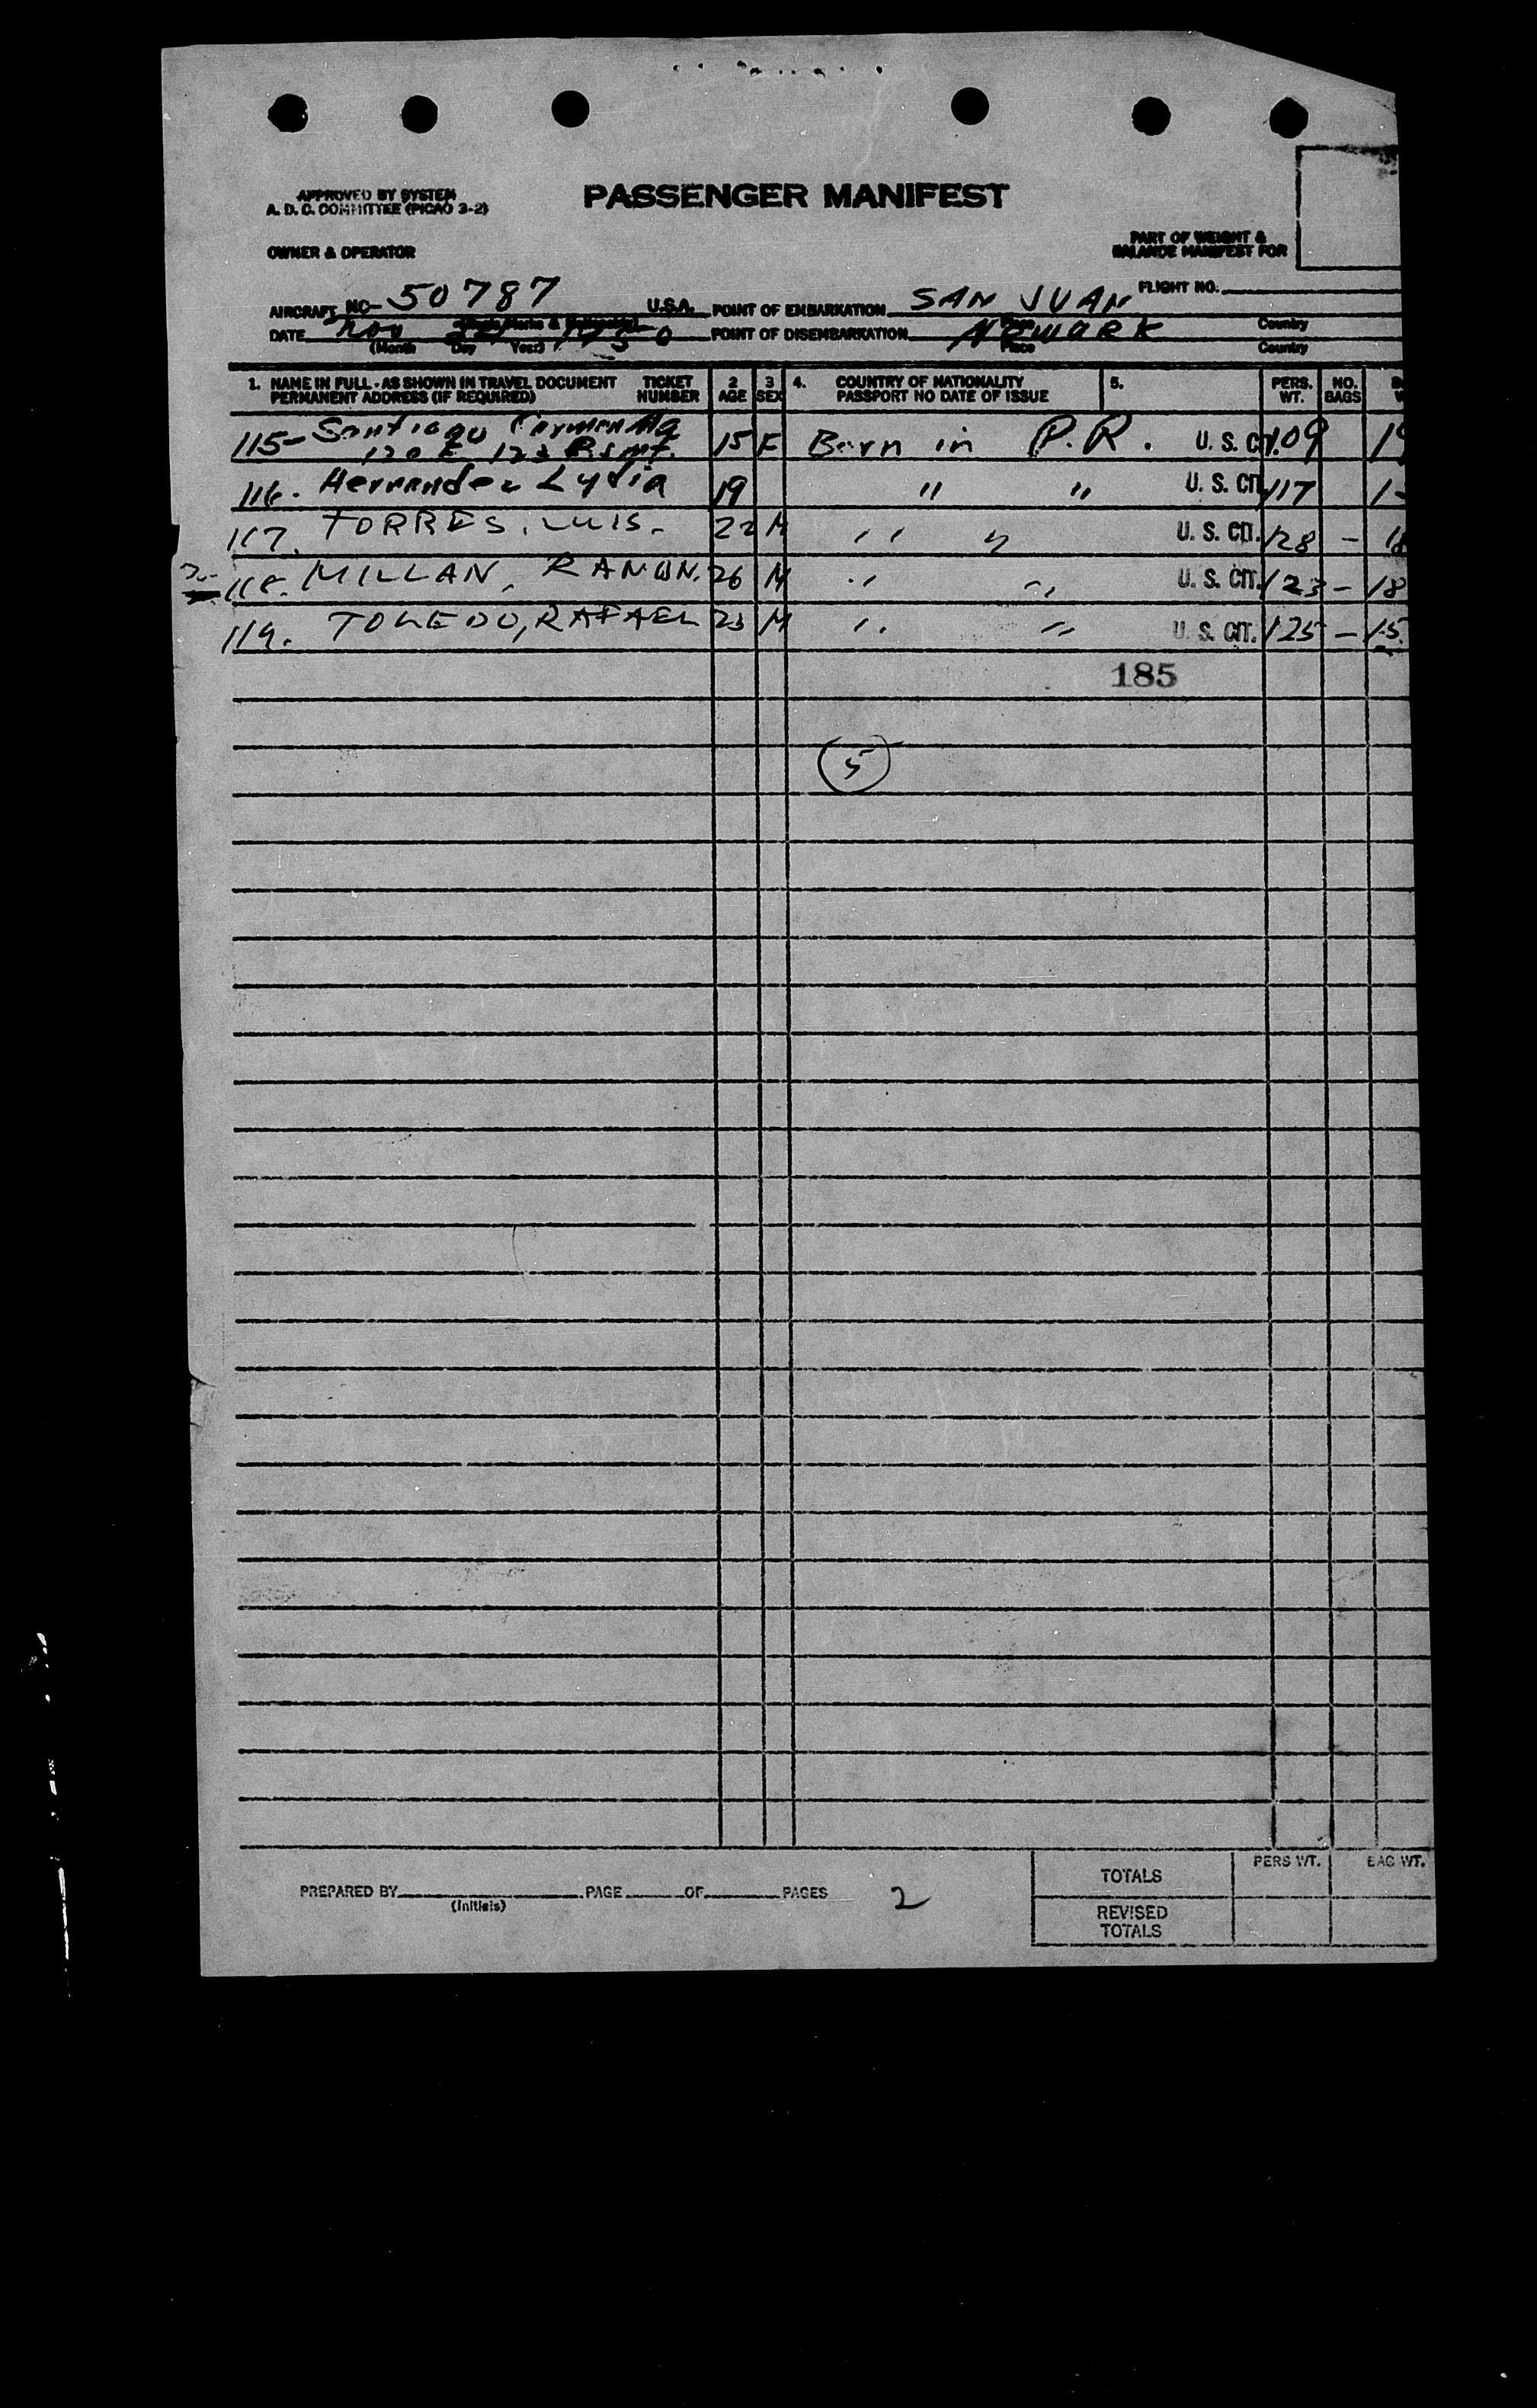 APPROVED BY SYSTEM
A. D. C. COMMITTEE (PICAO 3-2)
PASSENGER MANIFEST
OWNER & OPERATOR
PART OF WEIGHT &
BALANCE MANIFEST FOR
AIRCRAFT NC- 50787 U.S.A. POINT OF EMBARKATION SAN JUAN FLIGHT NO.
Place Country
DATE Nov 1950 POINT OF DISEMBARKATION NEWARK
(Month Day Year) Place Country
1. NAME IN FULL - AS SHOWN IN TRAVEL DOCUMENT TICKET 2 3 4. COUNTRY OF NATIONALITY 5. PERS. NO.
PERMANENT ADDRESS (IF REQUIRED) NUMBER AGE SEX PASSPORT NO DATE OF ISSUE WT. BAGS
115- Santiago Carmen Ma 15 F Born in P.R. U. S. CIT. 109
120 E 123 Bsmt.
116. Hernandez Lydia 19 " " U. S. CIT. 117
117. TORRES, LUIS. 22 M " " U. S. CIT. 128 -
118. MILLAN, RAMON. 26 M " " U. S. CIT. 123 - 18
119. TOLEDO, RAFAEL 23 M " " U. S. CIT. 125 - 15
185
5
PREPARED BY PAGE OF PAGES 2
(Initials)
PERS WT. BAG WT.
TOTALS
REVISED
TOTALS